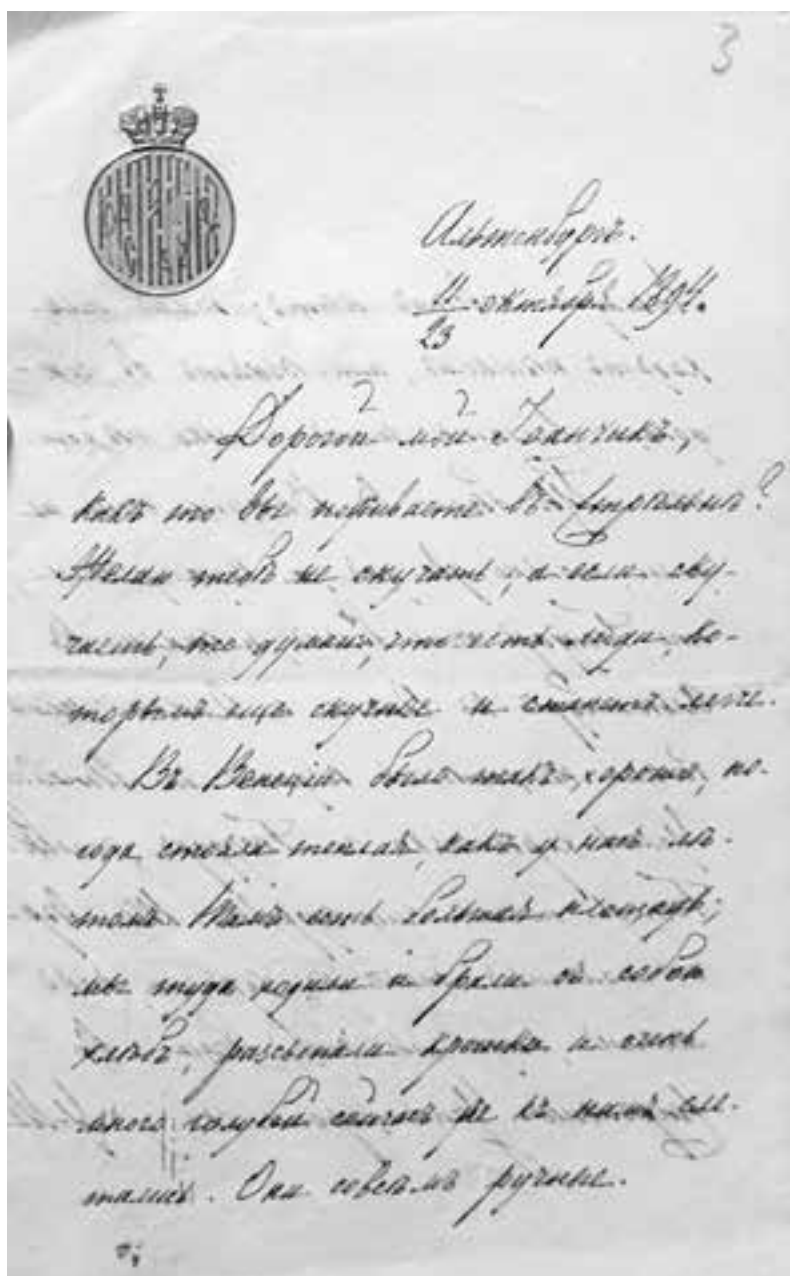 3
Альтенбургъ.
11 октября 1894.
23
Дорогой мой Іоанчикъ,
какъ то вы поживаете въ Стрѣльнѣ?
Желаю тебѣ не скучать, а если ску-
чаешь, то думай, что есть люди, ко-
торымъ еще скучнѣе и станетъ легче.
Въ Венеціи было такъ хорошо, по-
года стояла теплая, какъ у насъ лѣ-
томъ. Тамъ есть большая площадь;
мы туда ходили и брали съ собою
хлѣбъ, разсыпали крошки и очень
много голубей сейчасъ же къ намъ сле-
тались. Они совсѣмъ ручные.